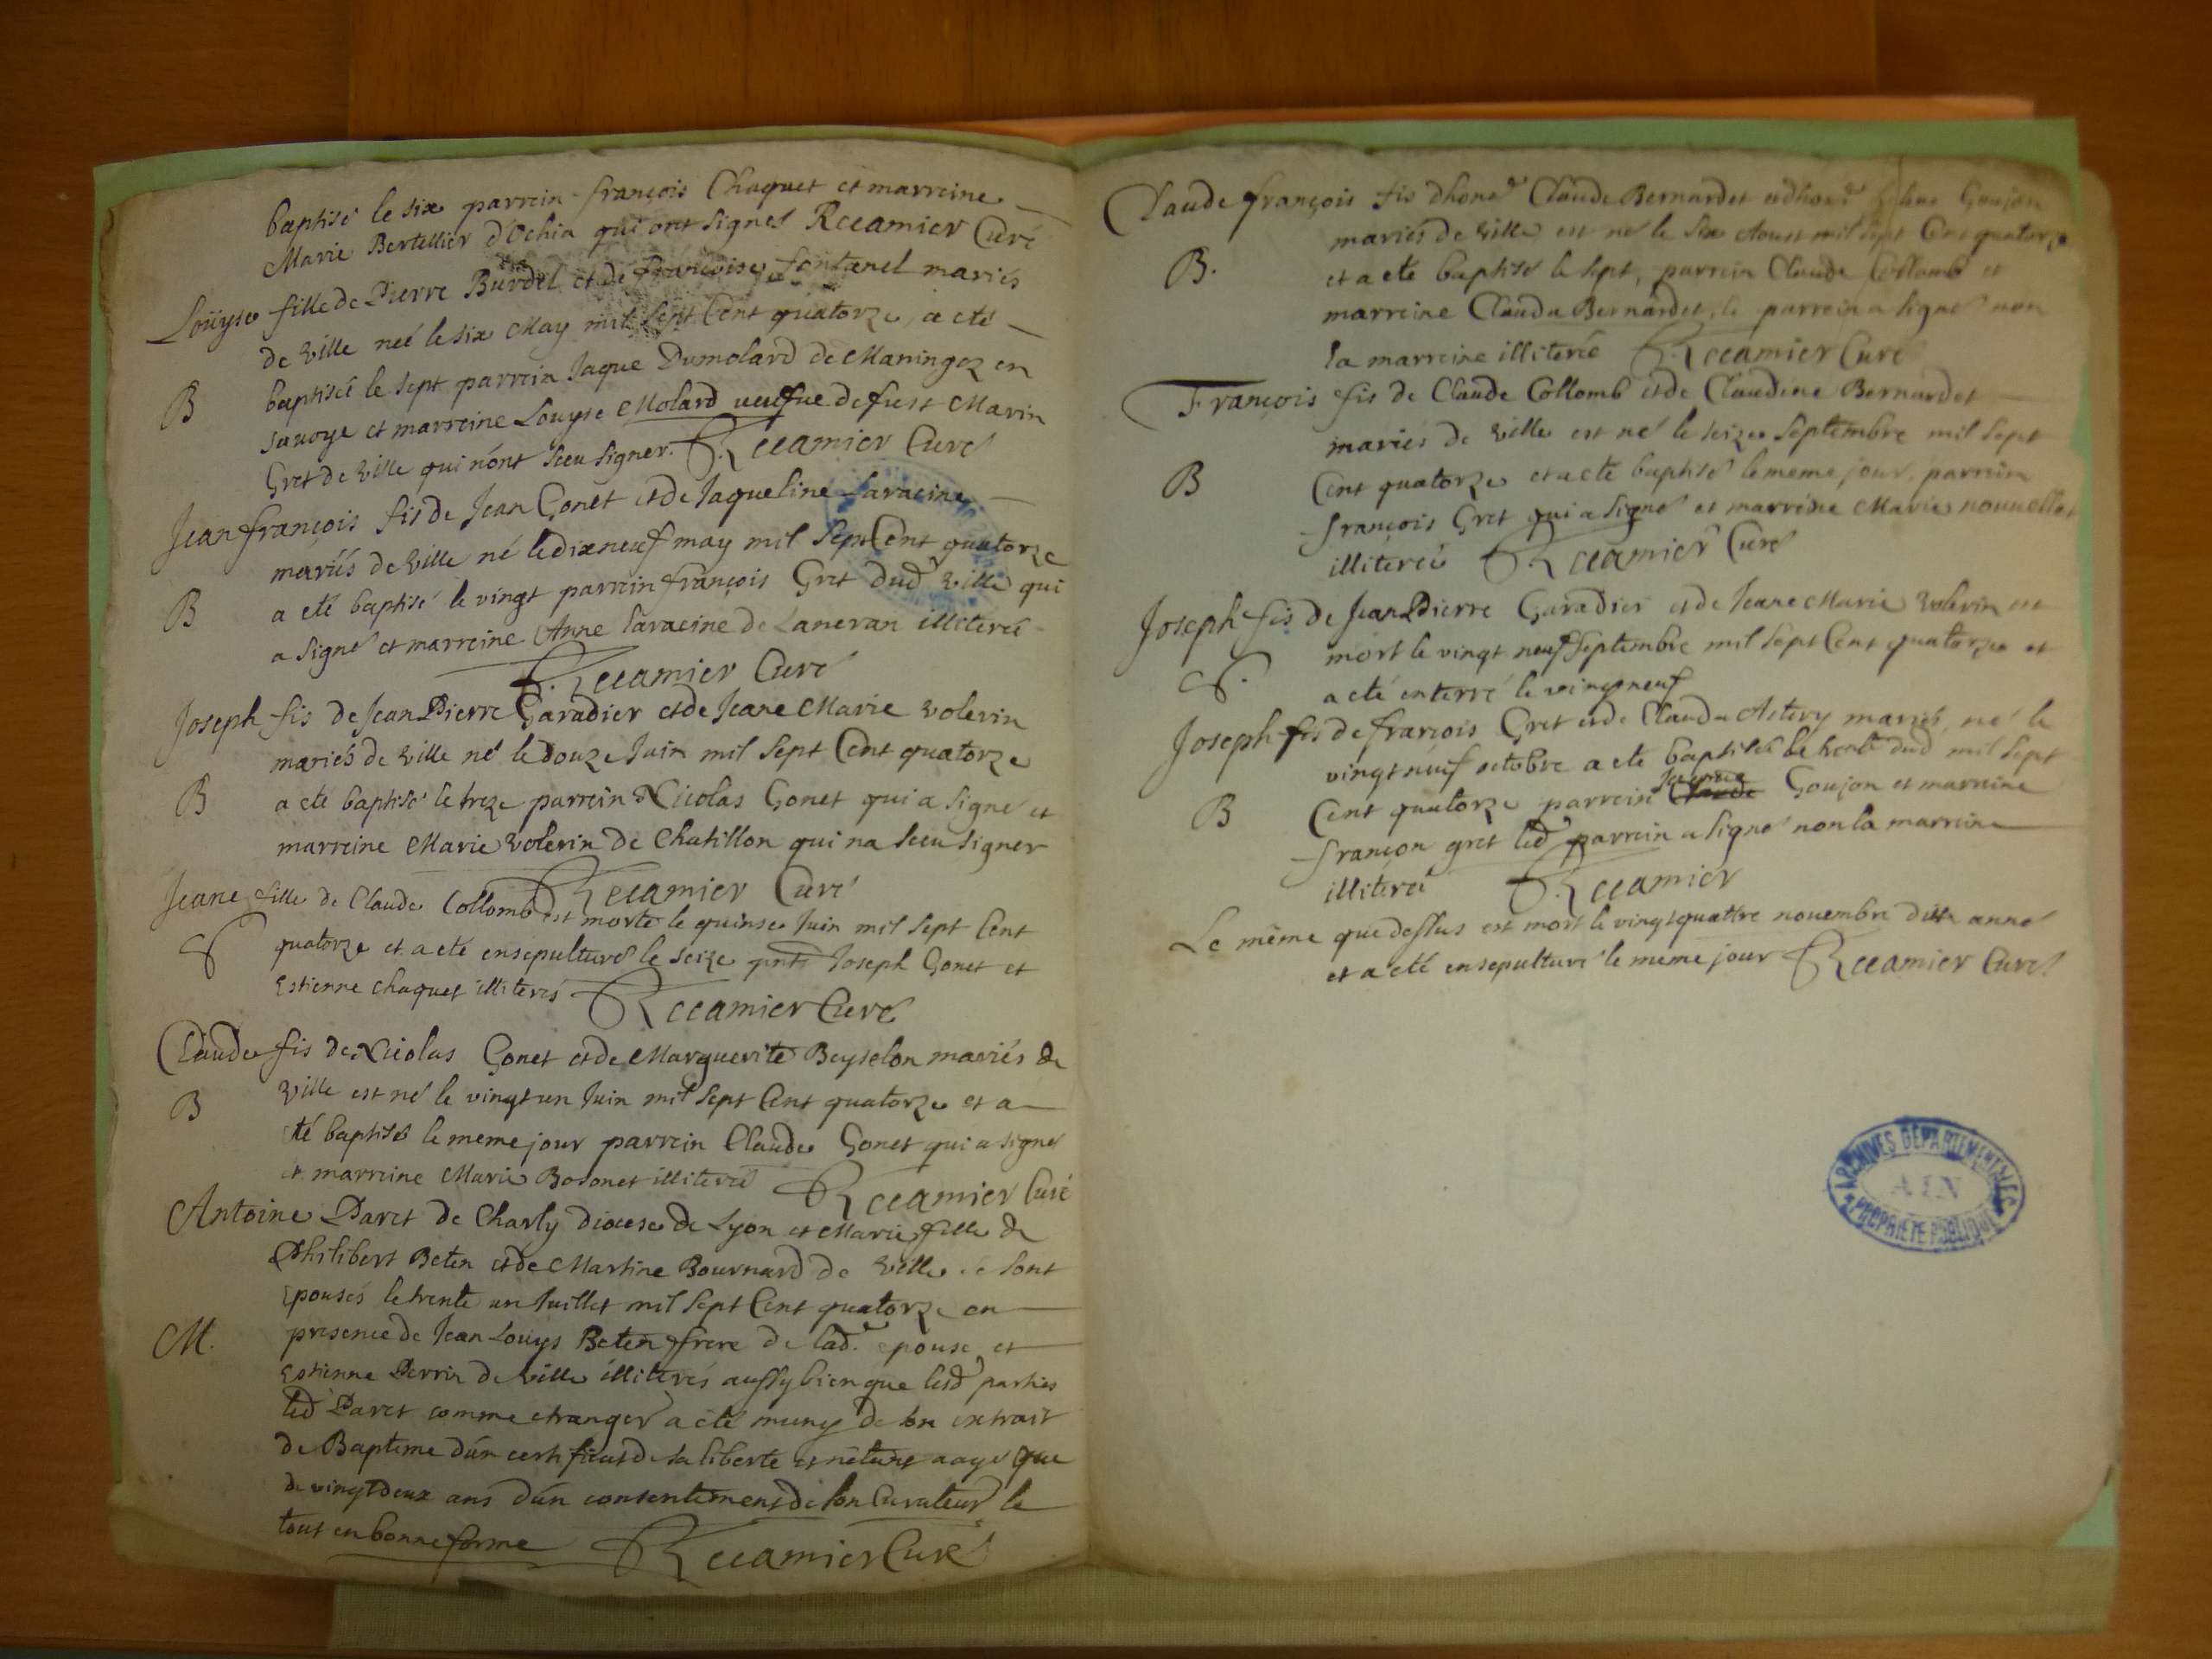 baptisé le six parrein françois Chaquet et marreine
Marie Bertellier d'Ochia qui ont signes Reeamier Curé
Loüyse fille de Pierre Burdel et de françoise fontanel mariés
de Ville neé le six May mil sept Cent quatorze a eté
B
baptisée le sept parrein Jaque Dumolard de Maningoz en
savoye et marreine Louyse Molard ueufue de fust Marin
Gret de Ville qui n'ont sceu signer. Reeamier Curé
Jean françois fis de Jean Gonet et de Jaqueline Saraeine
mariés de Ville né le dixneuf may mil sept Cent quatorze
B
a eté baptisé le vingt parrein françois Gret dud Ville qui
a signé et marreine Anne Saraeine de Laneran illiterée
Reeamier Curé
Joseph fis de Jean Pierre Garadier et de Jeane Marie Volerin
mariés de Ville né le douze Juin mil sept Cent quatorze
B
a eté baptisé le treze parrein Nicolas Gonet qui a signé et
marreine Marie Volerin de Chatillon qui na sceu signer
Reeamier Curé
Jeane fille de Claude Collomb est morte le quinse Juin mil sept Cent
S
quatorze et a eté ensepulturé le seize pnts Joseph Gonet et
Estienne Chaquet illiterés Reeamier Curé
Claude fis de Nicolas Gonet et de Marguerite Beyselon mariés de
B
Ville est né le vingt un Juin mil sept Cent quatorze et a
eté baptisé le meme jour parrein Claude Gonet qui a signé
et marreine Marie Bosonet illiterée Reeamier Curé
Antoine Paret de Charly diocese de Lyon et Marie fille de
Philibert Beten et de Martine Bournard de Ville se sont
epousés le trente un Juillet mil sept Cent quatorze en
M.
presence de Jean Louys Beten frere de lad. epouse et
Estienne Perrin de Ville illiterés aussy bien que lesd parties
led Paret comme etranger a eté muny de son extrait
de Bapteme d'un certificat de sa liberte et n'etant aagé que
de vingt deux ans d'un consentement de son Curateur le
tout en bonne forme Reeamier Curé
Claude françois fis dhone Claude Bernardet et dhone Goujon
mariés de Ville est né le six Aoust mil sept Cent quatorze
B.
et a eté baptisé le sept, parrein Claude Collomb et
marreine Clauda Bernardet, le parrein a signé non
la marreine illiterée Reeamier Curé
François fis de Claude Collomb et de Claudine Bernardet
mariés de Ville est né le seize septembre mil sept
B
Cent quatorze et a eté baptisé le meme jour, parrein
françois Gret qui a signé et marreine Marie nouuellet
illiterée Reeamier Curé
Joseph fis de Jean Pierre Garadier et de Jeane Marie Volerin est
mort le vingt neuf septembre mil sept Cent quatorze et
S.
a eté enterré le vingt neuf
Joseph fis de françois Gret et de Clauda Actery mariés né le
vingt neuf octobre a eté baptisé le trente dud mil sept
B
Cent quatorze parrein Claude Goujon et marreine
françon gret led parrein a signé non la marreine
illiterée Reeamier
Le même que dessus est mort le vingt quattre novembre ditte anné
et a eté ensepulturé le meme jour Reeamier Curé
ARCHIVES DEPARTEMENTALES
AIN
PROPRIÉTÉ PUBLIQUE